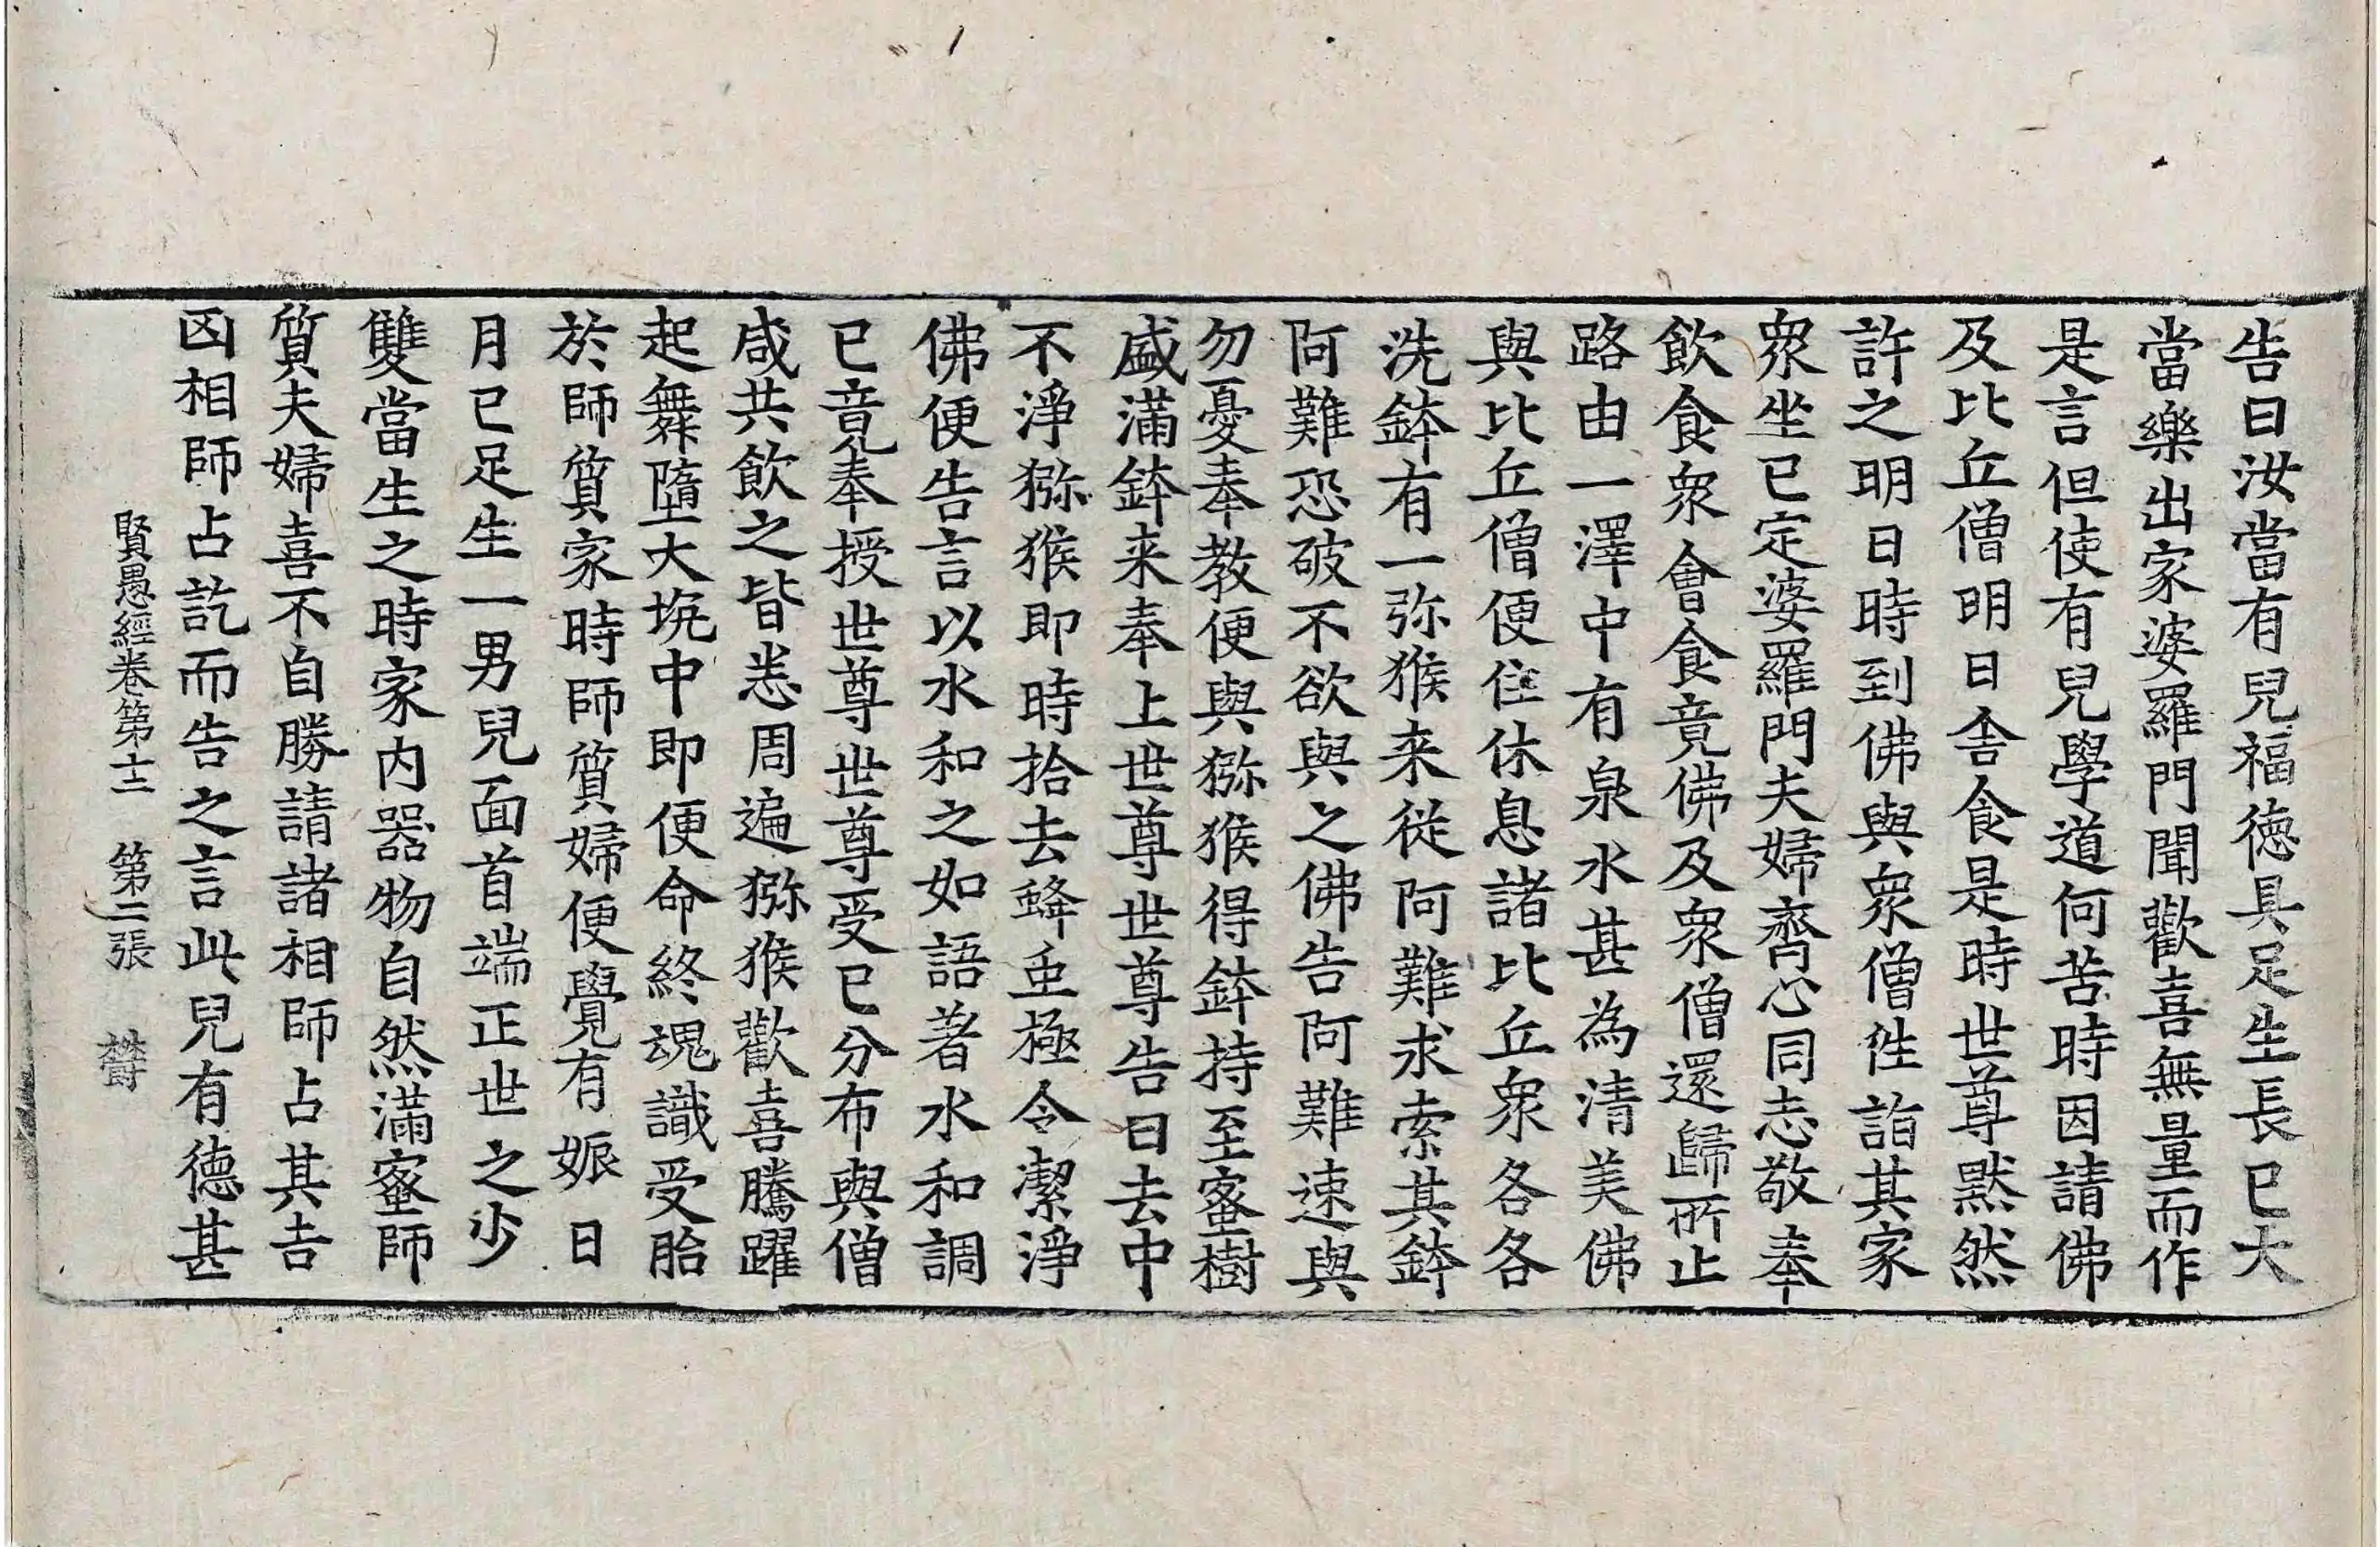 告曰汝當有兒福德具足生長已大
當樂出家婆羅門聞歡喜無量而作
是言但使有兒學道何苦時因請佛
及比丘僧明日舍食是時世尊黙然
許之明日時到佛與衆僧徃詣其家
衆坐已定婆羅門夫婦齊心同志敬奉
飲食衆會食竟佛及衆僧還歸所止
路由一澤中有泉水甚為清美佛
與比丘僧便住休息諸比丘衆各各
洗鉢有一弥猴来從阿難求索其鉢
阿難恐破不欲與之佛告阿難速與
勿憂奉教便與猕猴得鉢持至蜜樹
盛滿鉢来奉上世尊世尊告曰去中
不淨猕猴即時拾去蜂虫極令潔淨
佛便告言以水和之如語著水和調
已竟奉授世尊世尊受已分布與僧
咸共飲之皆悉周遍猕猴歡喜騰躍
起舞墮大坑中即便命終魂識受胎
於師質家時師質婦便覺有娠日
月已足生一男兒面首端正世之少
雙當生之時家内器物自然滿蜜師
質夫婦喜不自勝請諸相師占其吉
凶相師占訖而告之言此兒有德甚
賢愚經卷第十二 第二張 欝